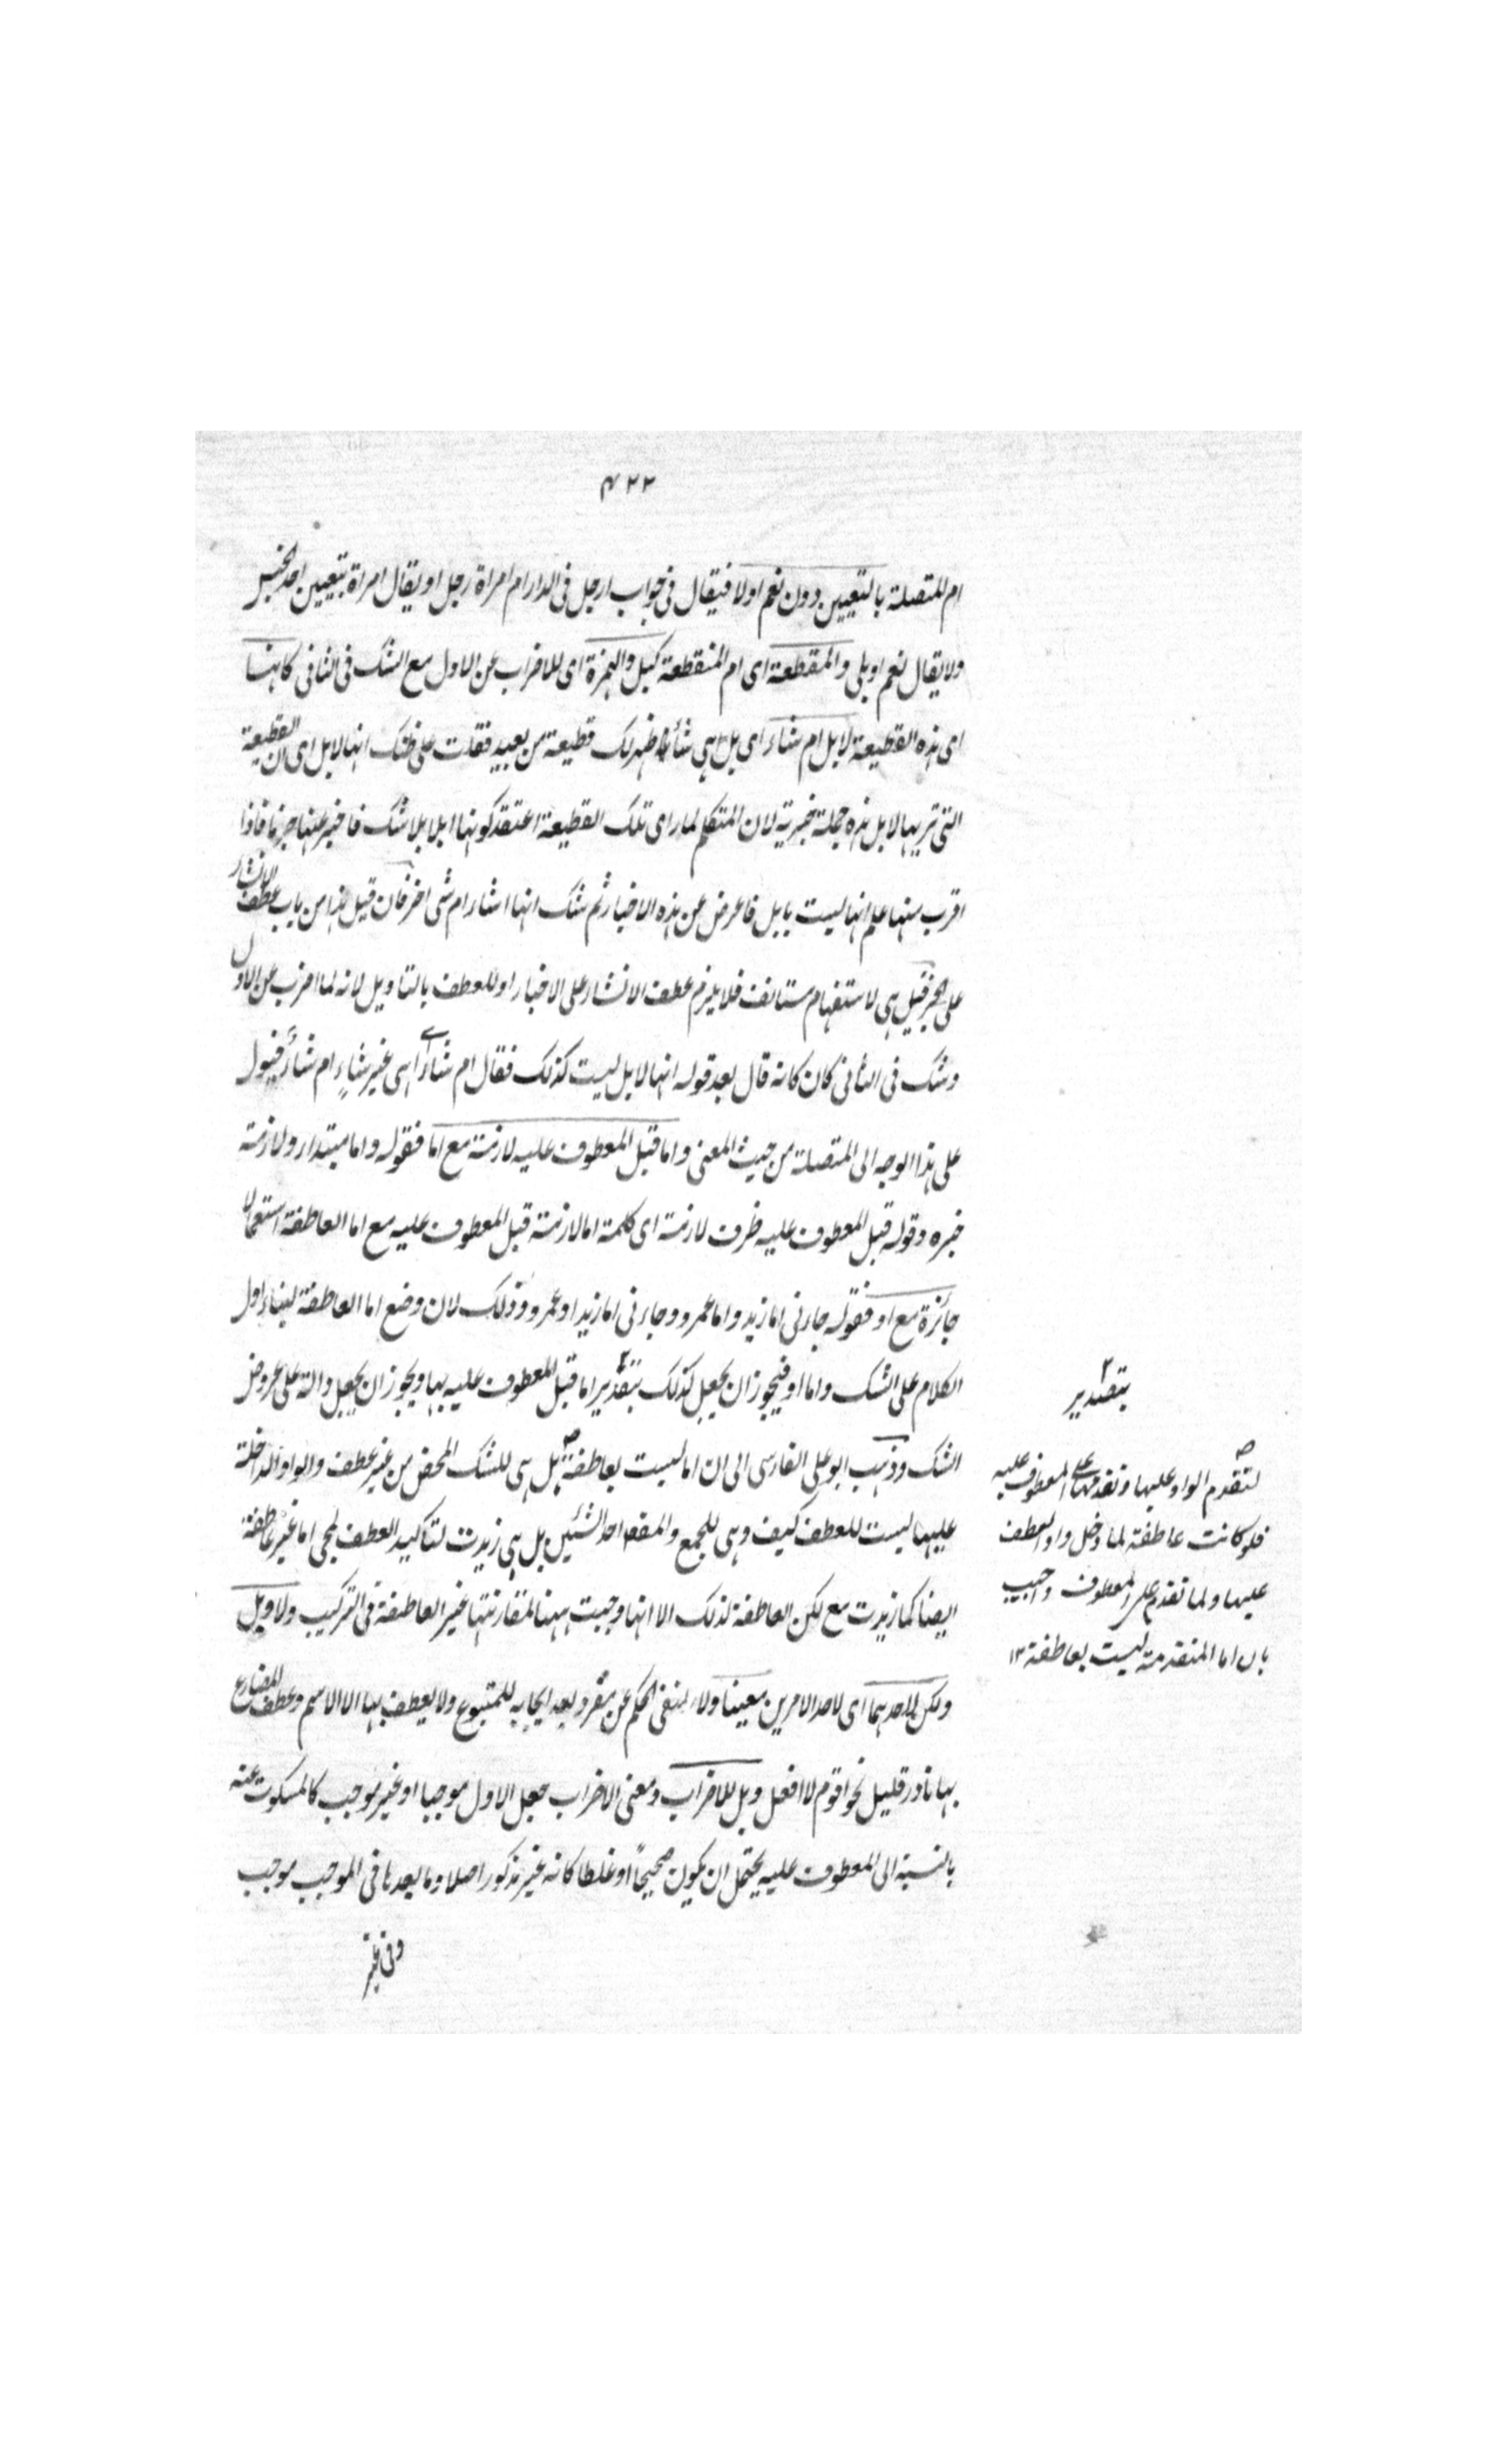 ۴۲۲
ام المتصلة بالتعيين دون نعم اولا فيقال فى جواب ارجل فى الدار ام امراة رجل او يقال امراة بتعيين احد الجنس
ولا يقال نعم او بلى والمنقطعة اى ام المنقطعة كبل والهمزة اى للاضراب عن الاول مع الشك فى الثانى كانها
اى هذه القطيعة لابل ام شاء اى بل اهى شاء ظهر لك قطيعة من بعيد فقلت على ظنك انها لابل اى ان القطيعة
التى تريها لابل هذه جملة خبرية لان المتكلم لما راى تلك القطيعة اعتقد كونها ابلا بلا شك فاخبر عنها جزما فاذا
اقرب منها علم انها ليست بابل فاعرض عن هذه الاخبار ثم شك انها شاء ام شى اخر فان قيل هذا من باب عطف الانشاء
على الخبر قيل هى لاستفهام مستانف فلا يلزم عطف الانشاء على الاخبار او للعطف بالتاويل لانه لما اضرب عن الاول
وشك فى الثانى كان كانه قال بعد قوله انها لابل ليست كذلك فقال ام شاء اى اهى غير شاءٍ ام شاء فيئول
على هذا الوجه الى المتصلة من حيث المعنى واما قبل المعطوف عليه لازمة مع اما فقوله واما مبتداء ولازمة
خبره وقوله قبل المعطوف عليه ظرف لازمة اى كلمة اما لازمة قبل المعطوف عليه مع اما العاطفة استعمالا
جائزة مع او فقوله جاءنى اما زيد واما عمرو وجاءنى اما زيد او عمرو وذلك لان وضع اما العاطفة لبناء اول
الكلام على الشك واما او فيجوز ان يجعل كذلك بتقدير اما قبل المعطوف عليه بها ويجوز ان يجعل دالة على عروض
الشك وذهب ابو على الفارسى الى ان اما ليست بعاطفة بل هى للشك المحض من غير عطف والواو الداخلة
عليها ليست للعطف كيف وهى للجمع والمقصد احد الشيئين بل هى زيدت لتاكيد العطف لمجى اما غير عاطفة
ايضا كما زيدت مع لكن العاطفة لذلك الا انها وجبت ههنا لمقارنتها غير العاطفة فى التركيب ولا وبل
ولكن لاحدهما اى لاحد الامرين معينا ولاء لنفى الحكم عن مفرد بعد ايجابه للمتبوع ولا يعطف بها الا الاسم وعطف المضارع
بها نادر قليل نحو اقوم لا افعل وبل للاضراب ومعنى الاضراب جعل الاول موجبا او غير موجب كالمسكوت عنه
بالنسبة الى المعطوف عليه يحتمل ان يكون صحيحًا او غلطا كانه غير مذكور اصلا وما بعدها فى الموجب موجب
وفى غير
بتصدير
لتقدم الواو عليها وتقدمها على المعطوف عليه
فلو كانت عاطفة لما دخل واو العطف
عليها ولما تقدم على المعطوف واجيب
بان اما المتقدمة ليست بعاطفة ۱۲